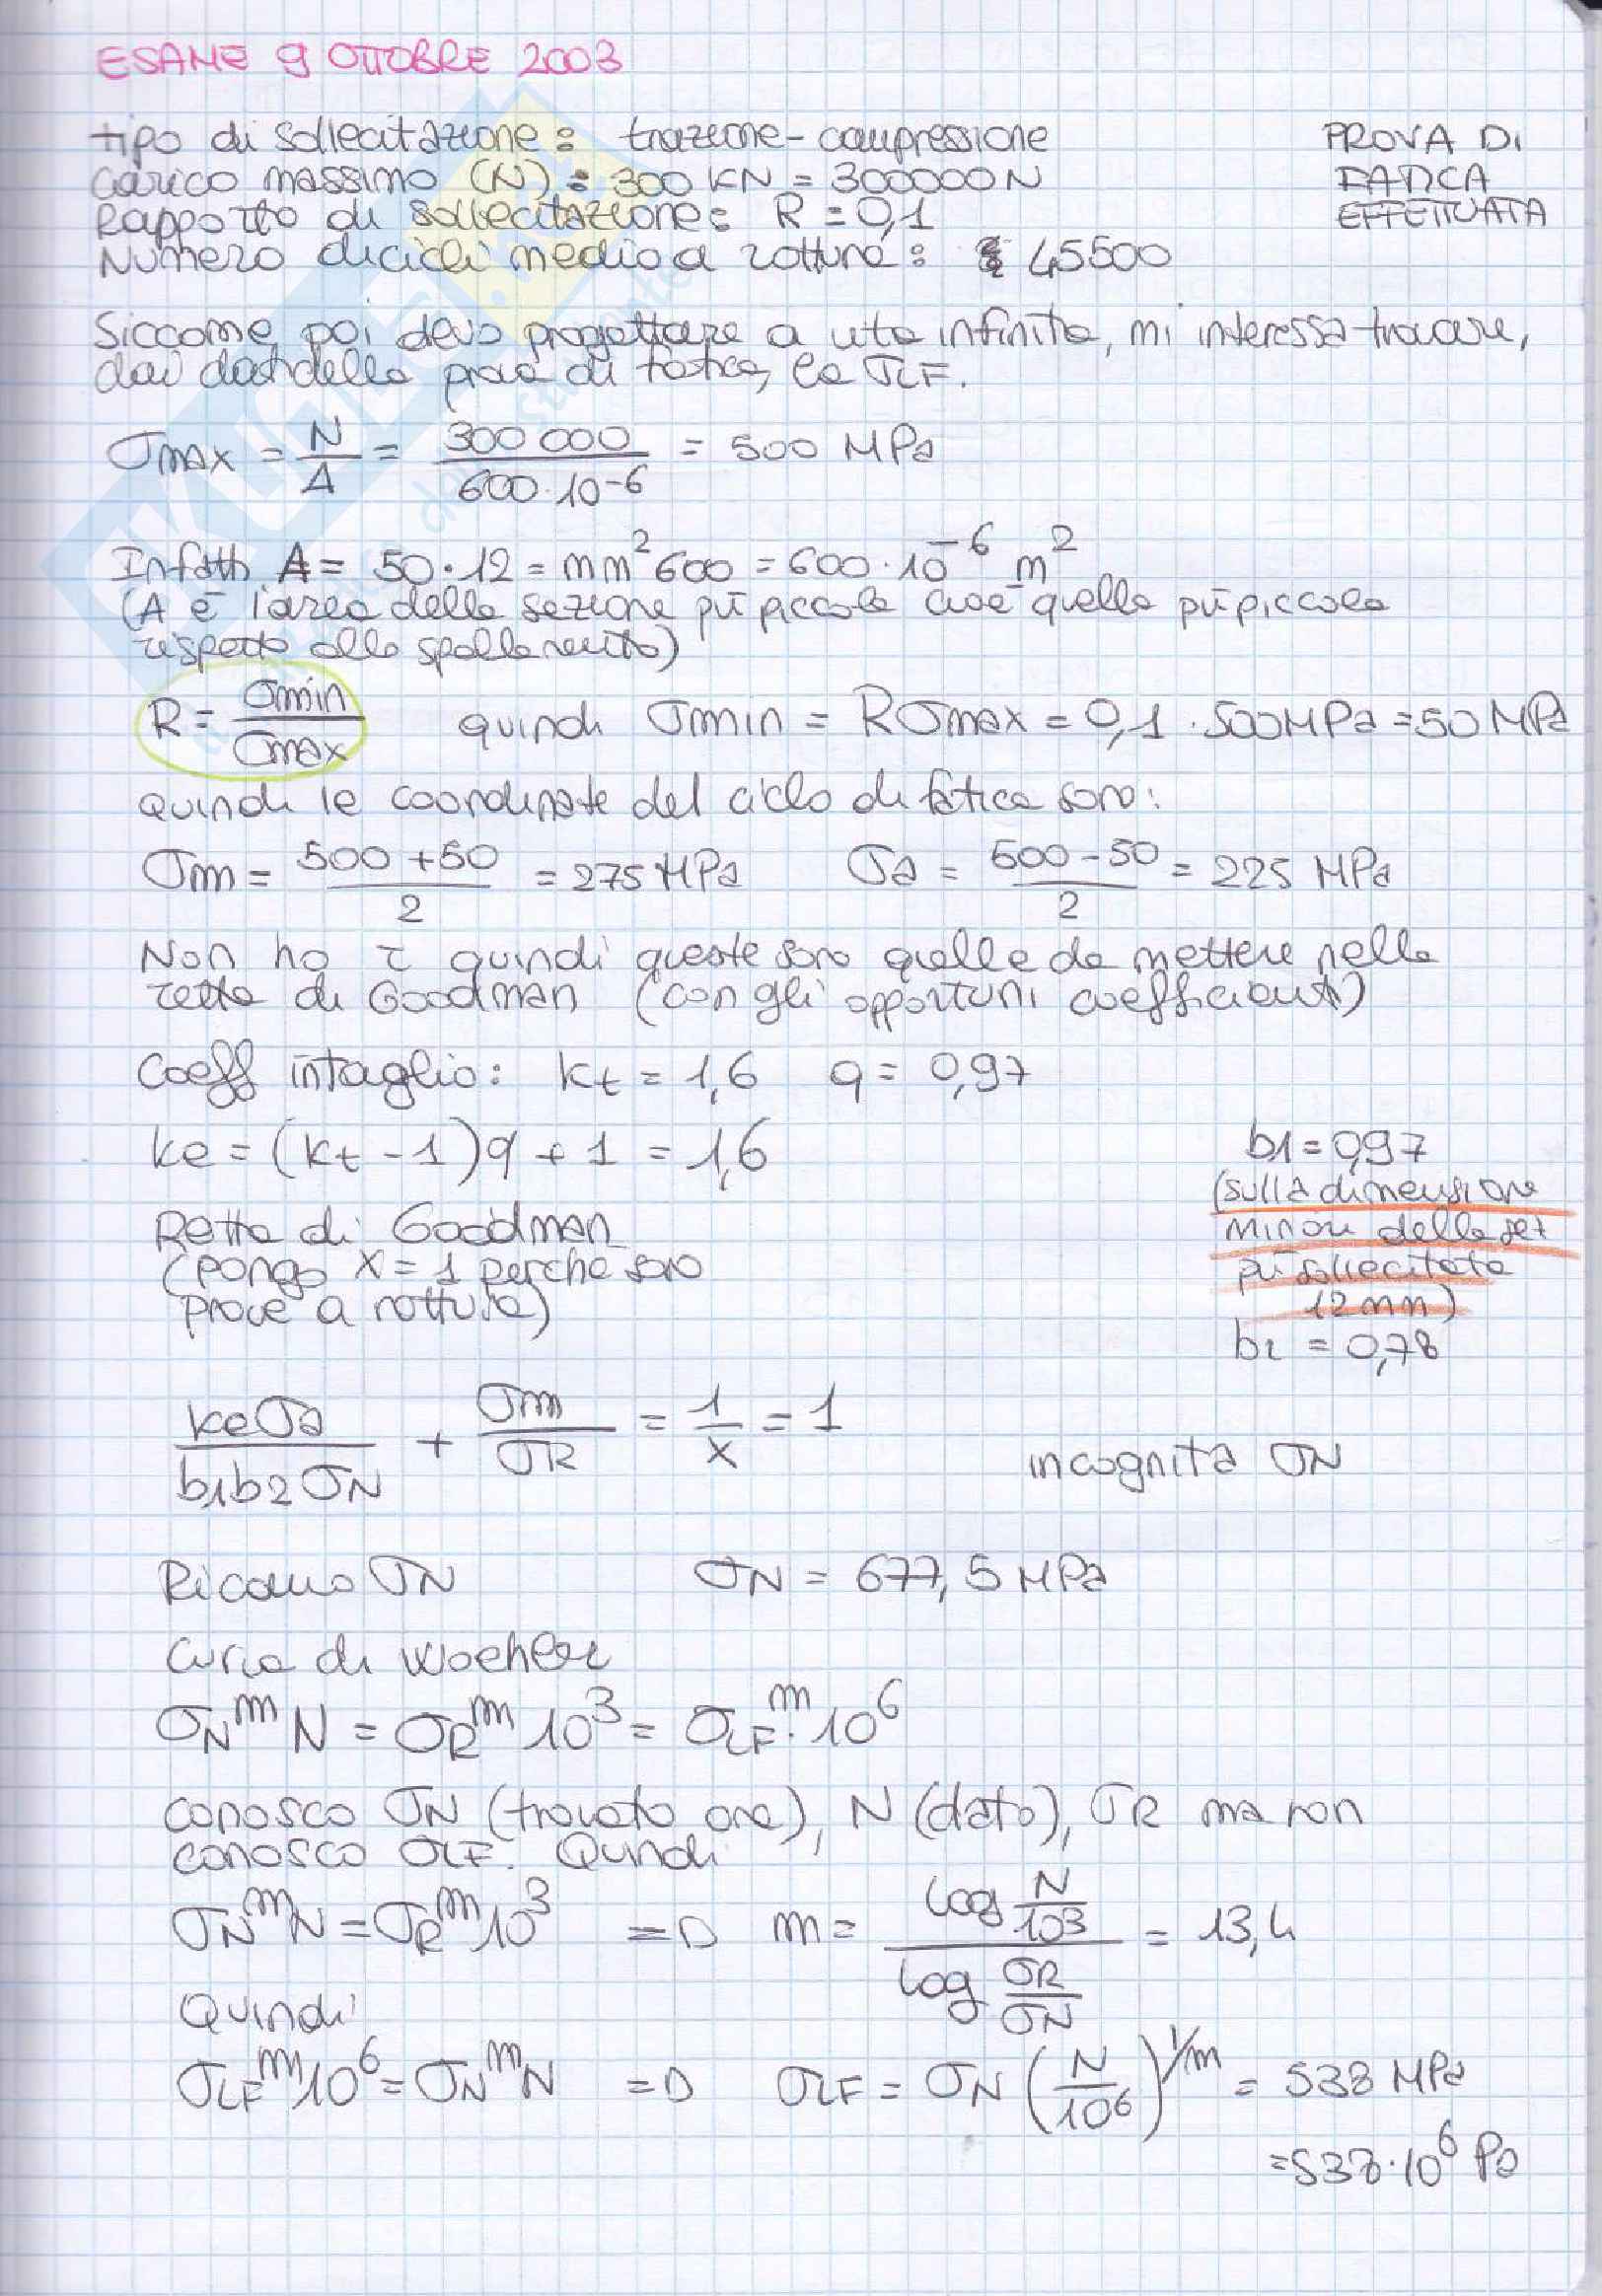 ESAME 9 OTTOBRE 2003
tipo di sollecitazione: trazione-compressione
carico massimo (N): 300 KN = 300000 N
Rapporto di sollecitazione: R = 0,1
Numero di cicli medio a rottura: 45500
PROVA DI
FATICA
EFFETTUATA
Siccome poi devo progettare a vita infinita, mi interessa trovare,
dai dati della prova di fatica, la σLF.
σmax = N/A = 300 000/600·10^-6 = 500 MPa
Infatti A = 50·12 = mm² 600 = 600·10^-6 m²
(A è l'area della sezione più piccola cioè quella più piccola
rispetto allo spallamento)
R = σmin/σmax quindi σmin = Rσmax = 0,1 · 500MPa = 50 MPa
quindi le coordinate del ciclo di fatica sono:
σm = 500+50/2 = 275 MPa σa = 500-50/2 = 225 MPa
Non ho τ quindi queste sono quelle da mettere nella
retta di Goodman (con gli opportuni coefficienti)
Coeff intaglio: kt = 1,6 q = 0,97
ke = (kt - 1)q + 1 = 1,6
b1 = 0,97
(sulla dimensione
minore della sez
più sollecitata
12 mm)
b2 = 0,78
Retta di Goodman
(pongo X = 1 perché sono
prove a rottura)
keσa/b1b2σN + σm/σR = 1/X = 1
incognita σN
Ricavo σN σN = 677,5 MPa
Curva di Woehler
σN^m N = σR^m 10³ = σLF^m · 10⁶
conosco σN (trovato ora), N (dato), σR ma non
conosco σLF. Quindi
σN^m N = σR^m 10³ => m = log N/10³ / log σR/σN = 13,4
Quindi
σLF^m 10⁶ = σN^m N => σLF = σN (N/10⁶)^1/m = 538 MPa
= 538·10⁶ Pa